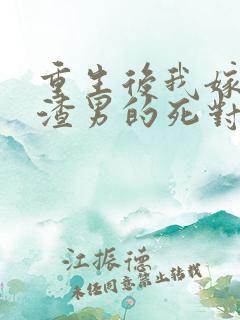 重生後我嫁
渣男的死對
江振德
未任同意禁止轉載